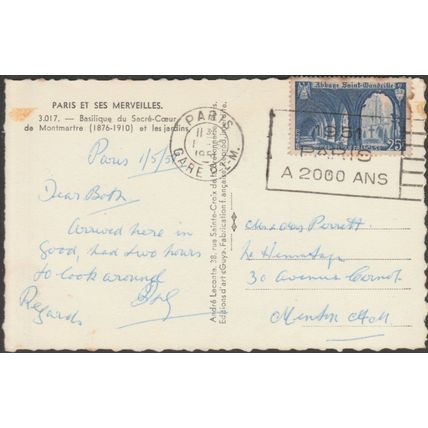 PARIS ET SES MERVEILLES.
3.017. — Basilique du Sacré-Cœur
de Montmartre (1876-1910) et les jardins
Paris 1/5/51
Dear Both
Arrived here in
good, had two hours
to look around
Regards
André Leconte, 38, rue Sainte-Croix-de-la-Bretonnerie, Paris
Editions d'art «Guy». Fabrication française
PARIS
GARE
Abbaye Saint-Wandrille
25F
1951
PARIS
A 2000 ANS
Perrett
The Hermitage
30 Avenue Carnot
Menton